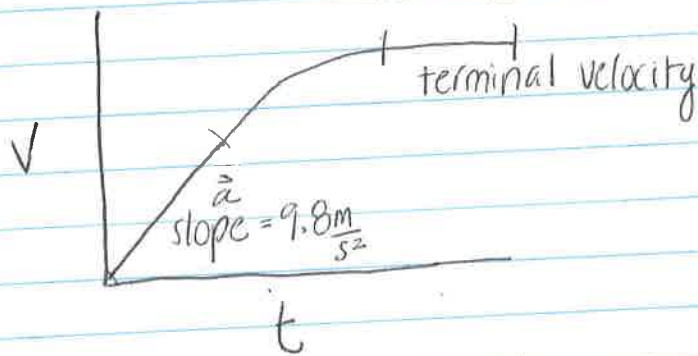 terminal velocity
V
a⃗
slope = 9.8 m/s²
t